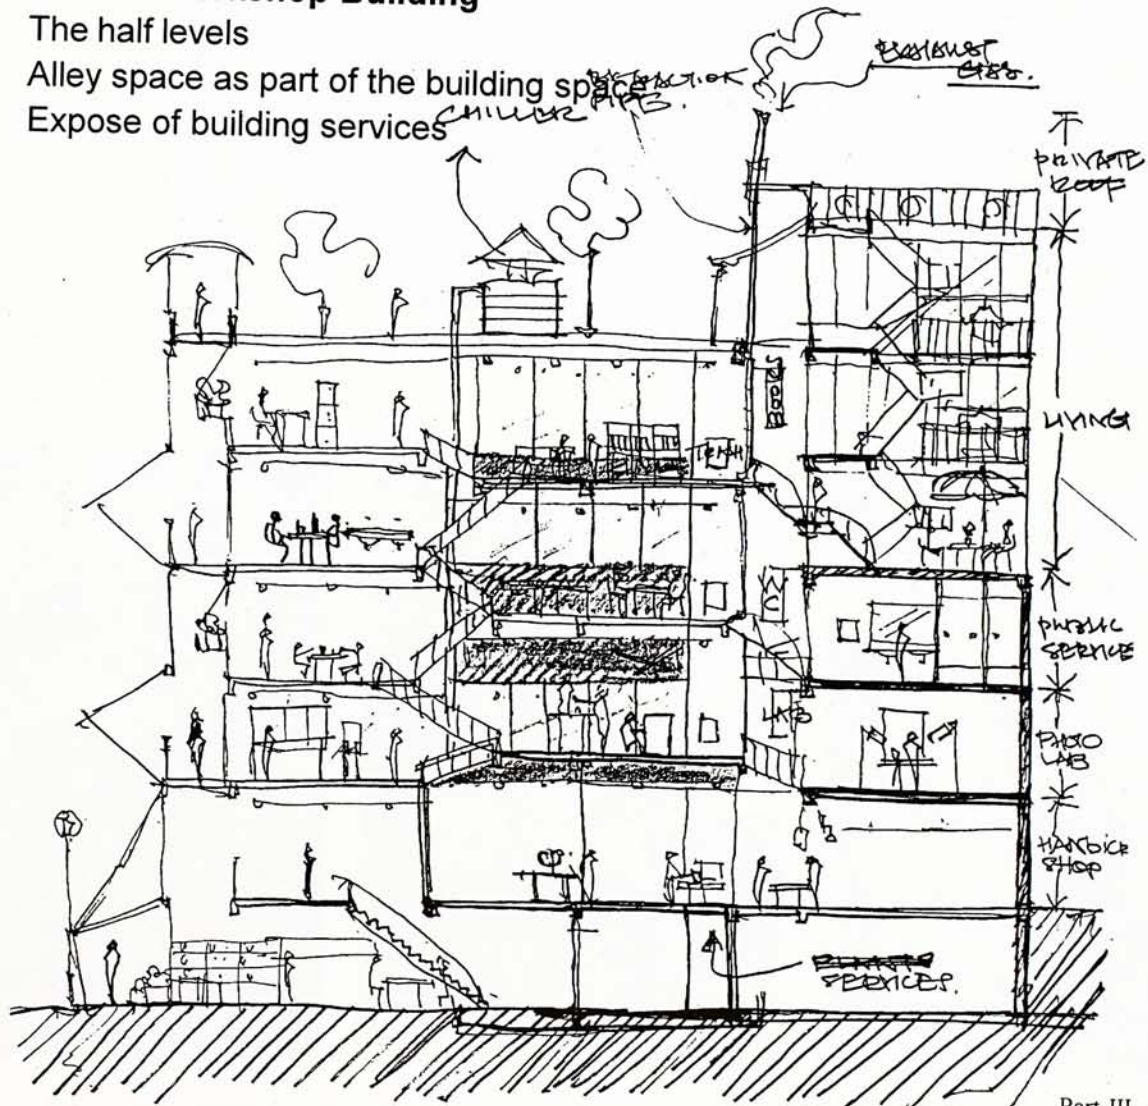 Building
The half levels
Alley space as part of the building space
Expose of building services
EXHAUST
CHILLER
PIPE.
PRIVATE
ROOF
LIVING
PUBLIC
SERVICE
WC
LAB
PHOTO
LAB
SHOP
SERVICES.
Part III